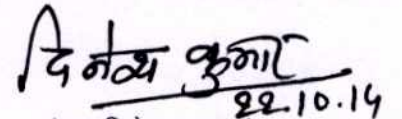 दिनेश कुमार
22.10.14